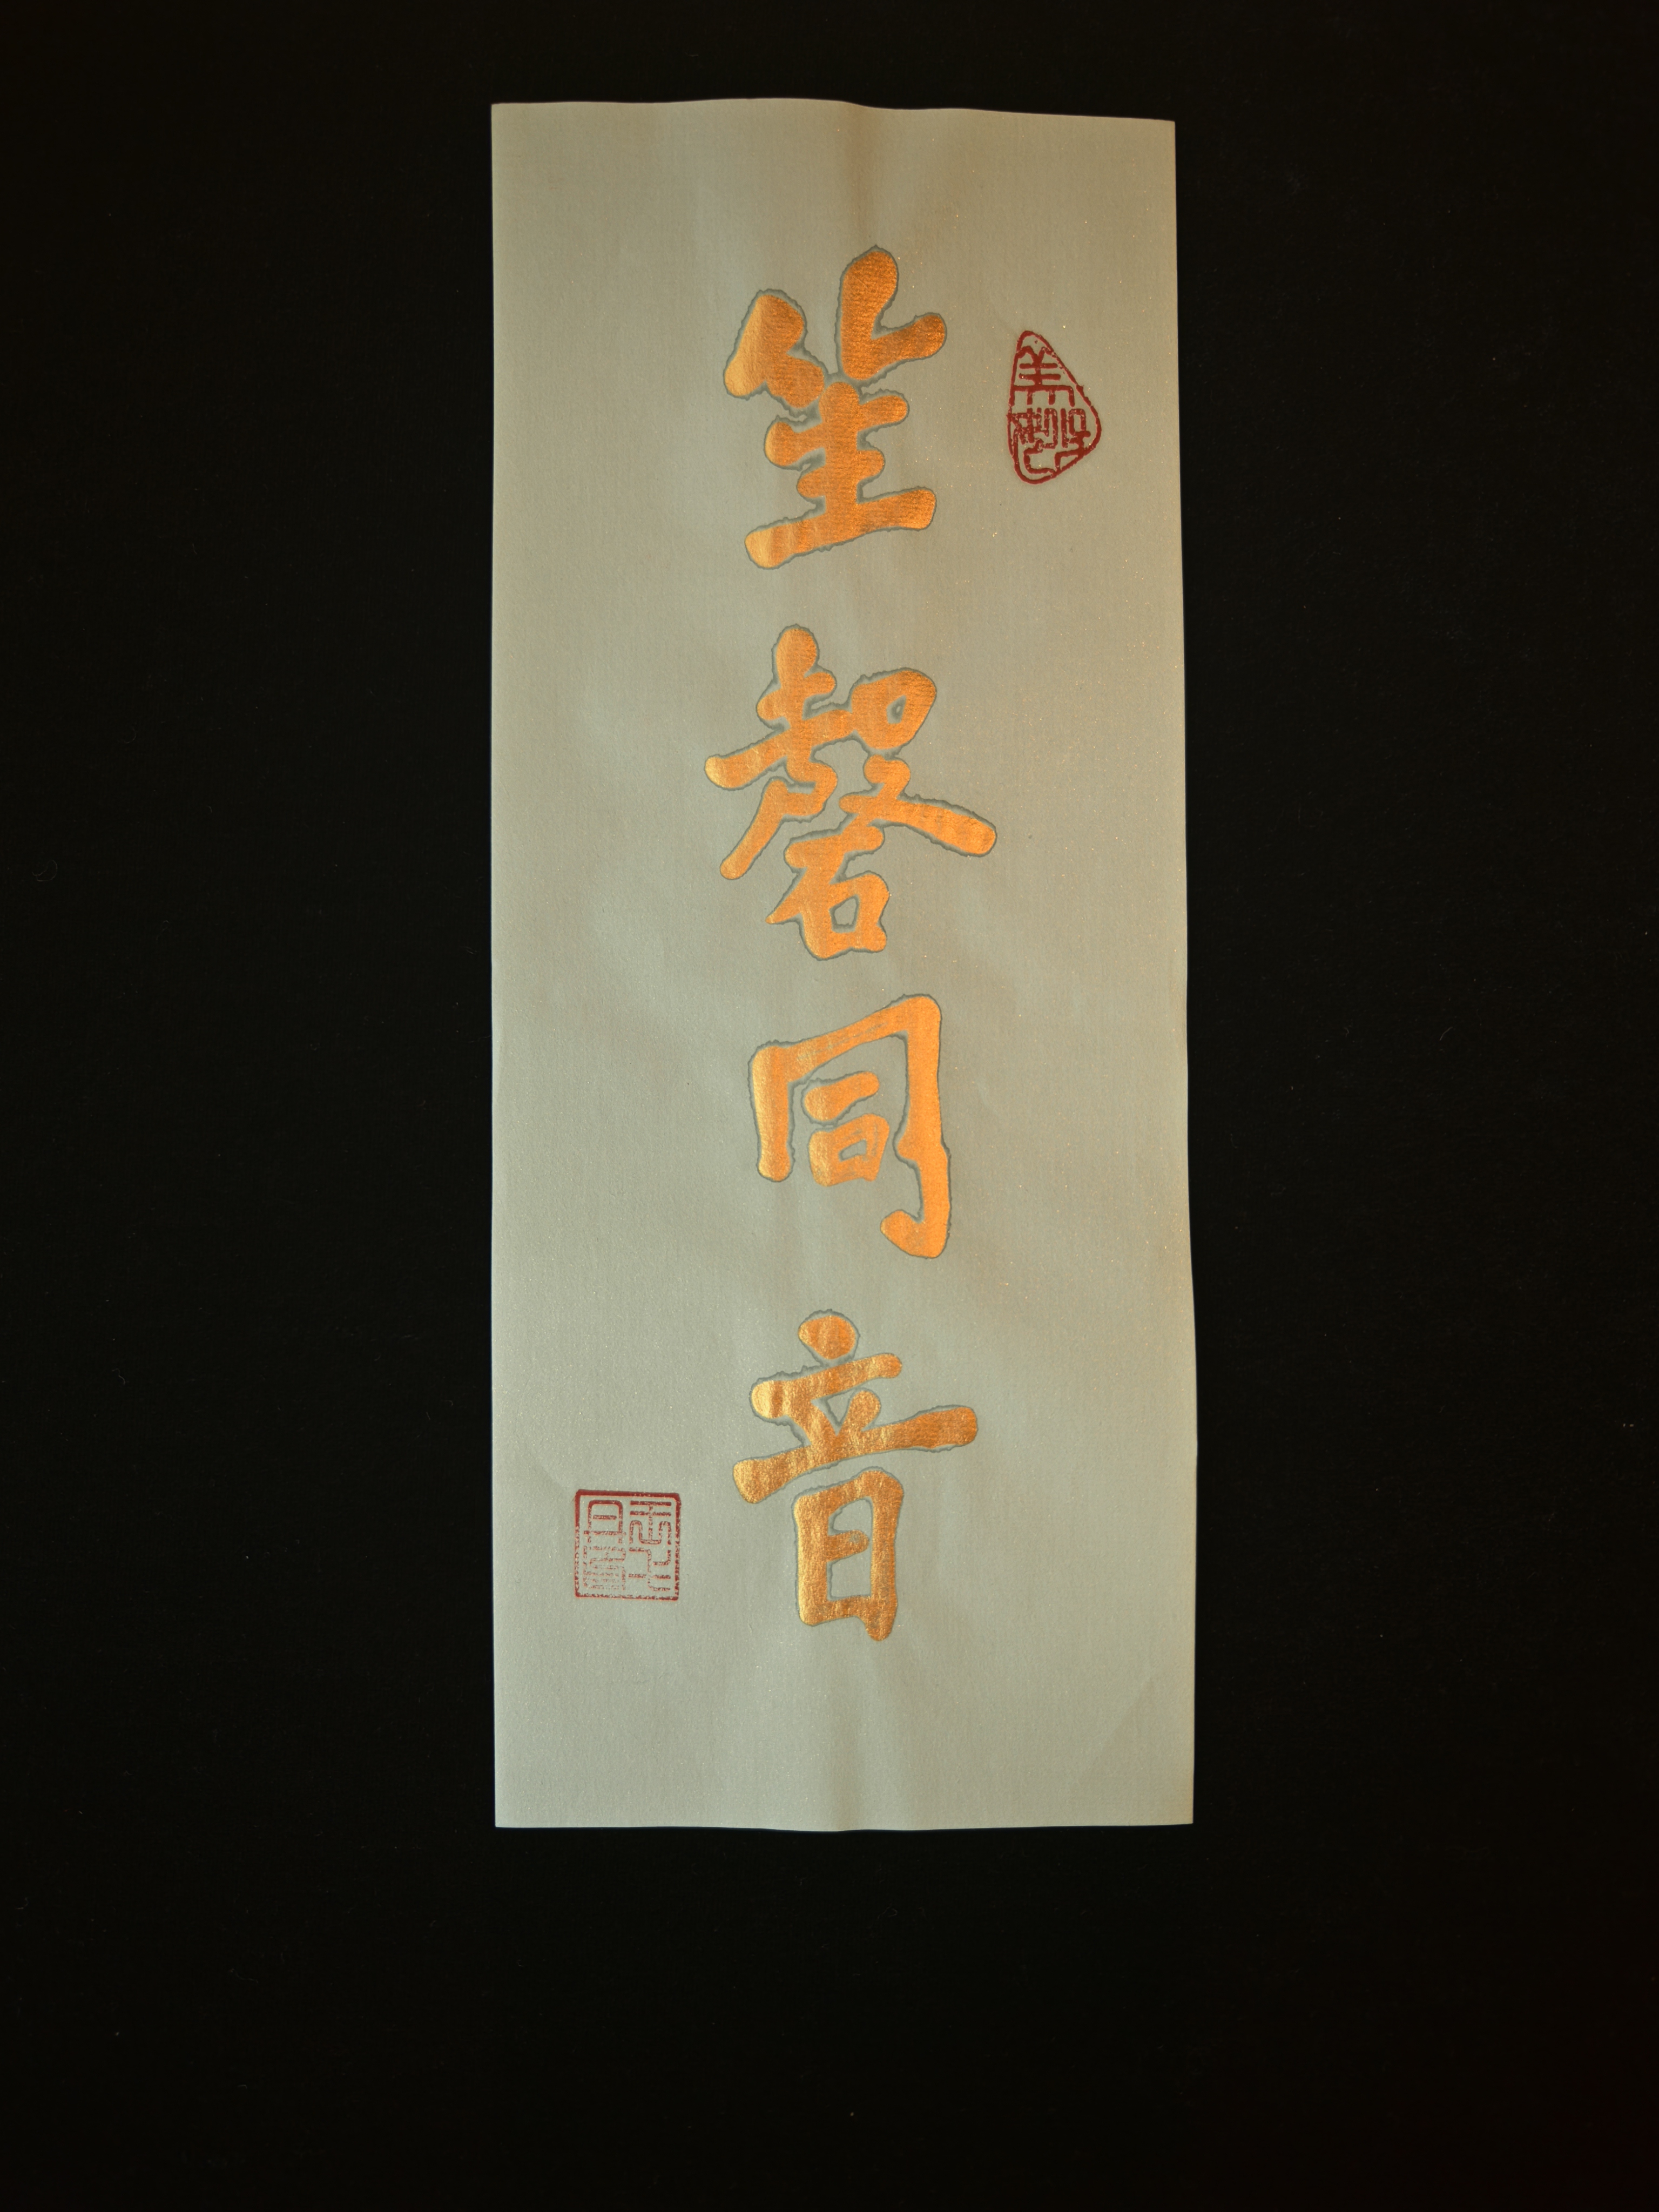 笙磬同音